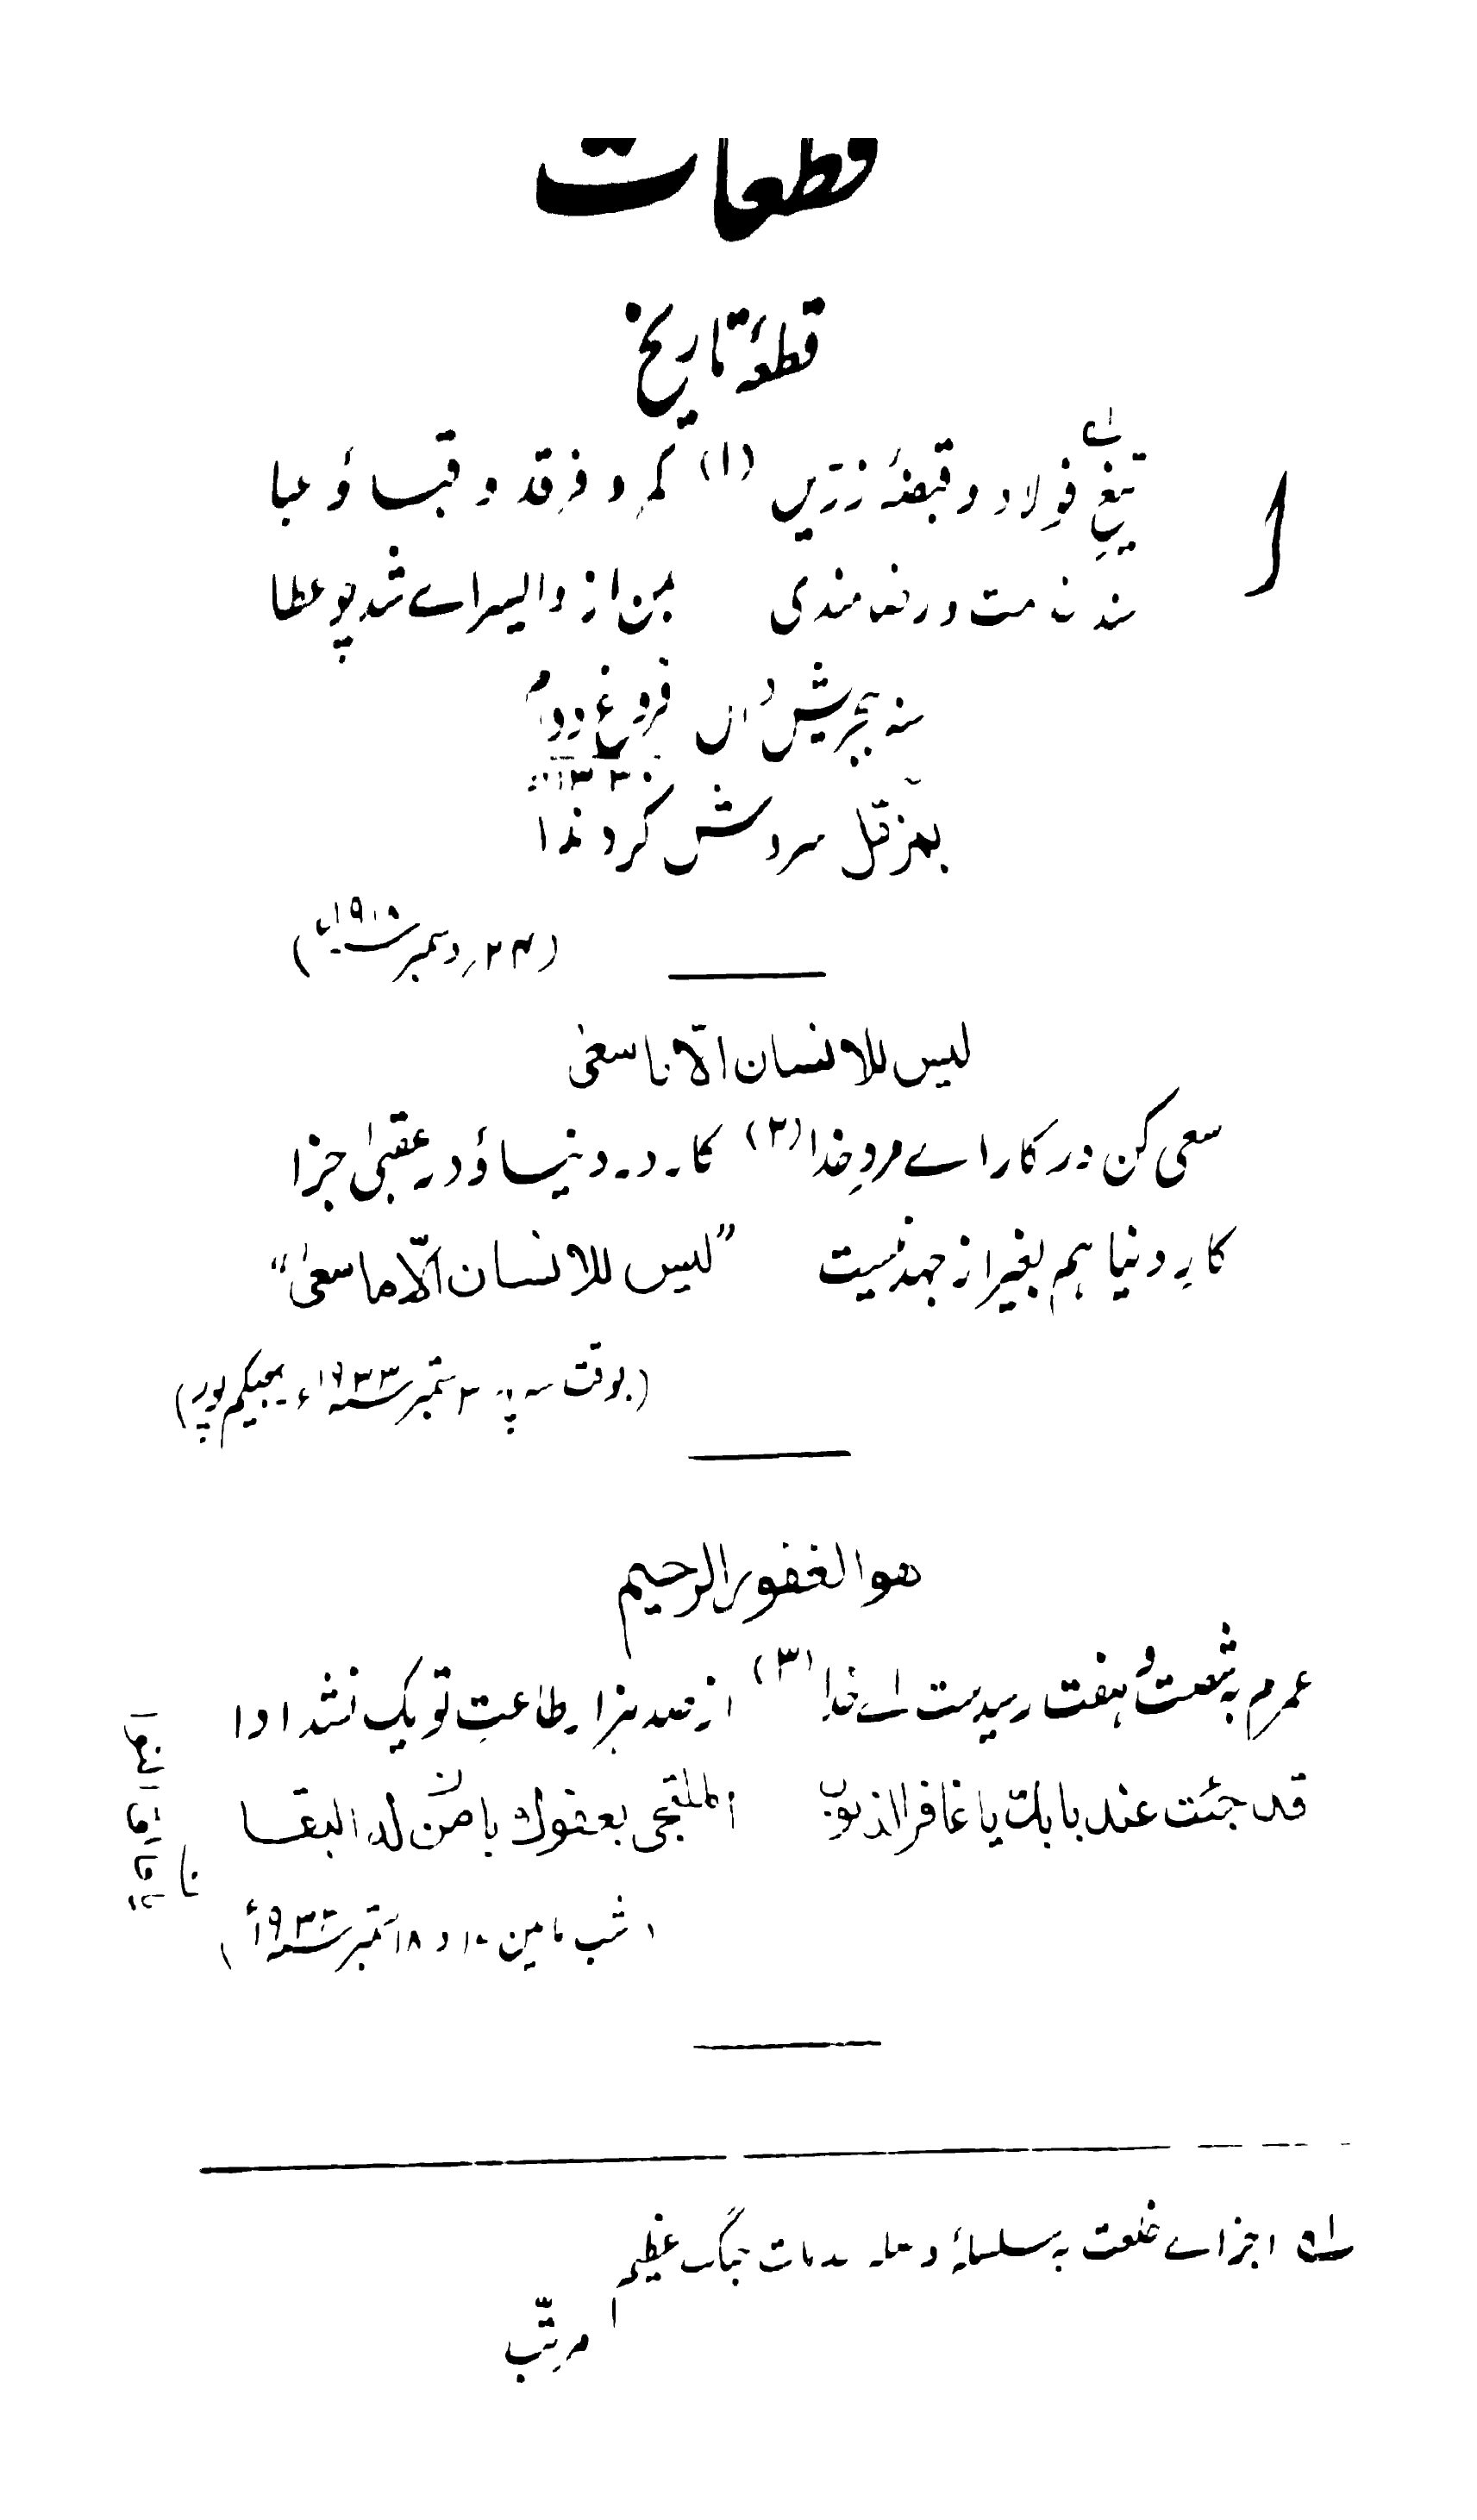 قطعات
قطعۂ تاریخ
تیغِ فولاد و قبضۂ زرّیں (۱) کمر و فرقد و قبا و عبا
سند خدمت و رضامندی بمن از وایسرائے شد چو عطا
سنہ ہجریش فروغِ
بہر نقل سروش کرد ندا
(۲۳؍ دسمبر ۱۹۱۸ء)
لیس للانسان الّا ما سعیٰ
سعی کن در کار اے مردِ خدا (۲) کار در دنیا و در عقبیٰ جزا
کارِ دنیا ہم بغیر از جہد نیست ”لیس للانسان الّا ما سعیٰ“
(بوقت سہ پہر ستمبر ۱۹۳۳ء، بھیکم پور)
ھو الغفور الرحیم
عمرم بشصت و ہفت رسیدست اے خدا (۳) از صد ہزار طاعتِ تو یک نشد ادا
قد جئت عند بابك یا غافر الذنوب الملتجی بعفوك یا من له البقا
شب مابین ۱۰ و
اجزاے خلعت بہ سلسلۂ و صلہ خدمات جنگ عظیم
مرتّب